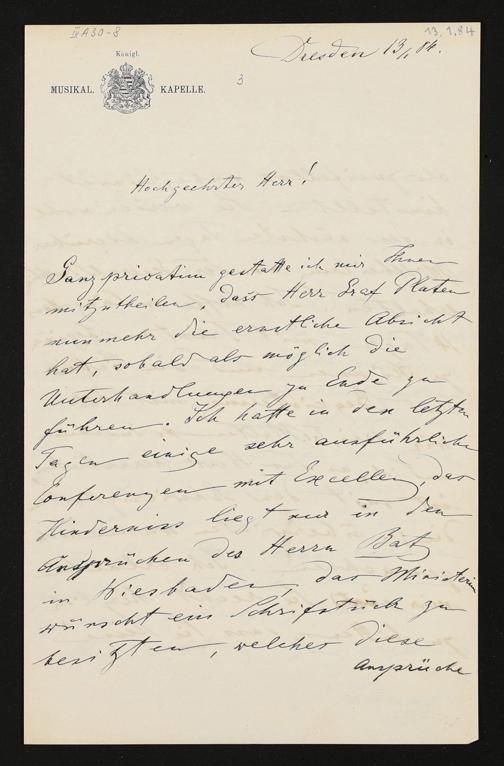 IV A 30-8
13.1.84
Königl.
MUSIKAL. KAPELLE.
Dresden 13/1 84.
3
Hochgeehrter Herr!
Ganz privatim gestatte ich mir Ihnen
mitzutheilen, dass Herr Graf Platen
nunmehr die ernstliche Absicht
hat, sobald als möglich die
Unterhandlungen zu Ende zu
führen. Ich hatte in den letzten
Tagen einige sehr ausführliche
Conferenzen mit Excellenz, das
Hinderniss liegt nur in den
Ansprüchen des Herrn Batz
in Wiesbaden, das Ministerium
wünscht ein Schriftstück zu
besitzen, welches diese
Ansprüche